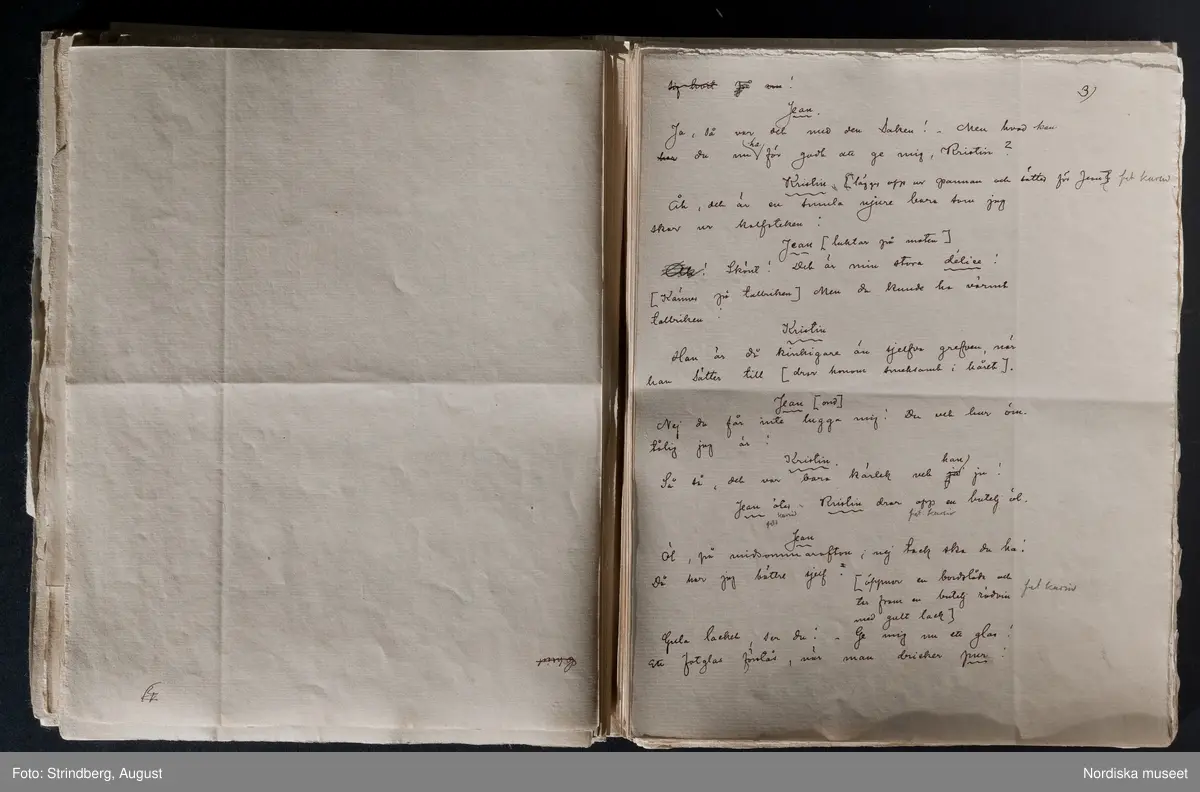 3)
sig bort
Jean.
Ja, så var det med den Saken! - Men hvad kan
du nu ha för godt att ge mig, Kristin?
Kristin. [lägger opp ur pannan och sätter för Jean] fet kursiv
Åh, det är en smula njure bara som jag
skar ur kalfsteken!
Jean [luktar på maten]
Skönt! Det är min stora délice!
[Känner på tallriken] Men du kunde ha värmt
tallriken!
Kristin
Han är då kinkigare än sjelfva grefven, när
han sätter till [drar honom smeksamt i håret].
Jean [ond]
Nej du får inte lugga mig! Du vet hur öm-
tålig jag är!
Kristin.
Så så, det var bara kärlek vet han ju!
Jean äter. Kristin drar opp en butelj öl.
fet kursiv fet kursiv
Jean
Öl, på midsommarafton; nej tack ska du ha!
Då har jag bättre sjelf! [öppnar en bordslåda och
tar fram en butelj rödvin fet kursiv
med gult lack]
Gula lacket, ser du! - Ge mig nu ett glas!
Ett fotglas förstås, när man dricker pur!
Foto: Strindberg, August
Nordiska museet